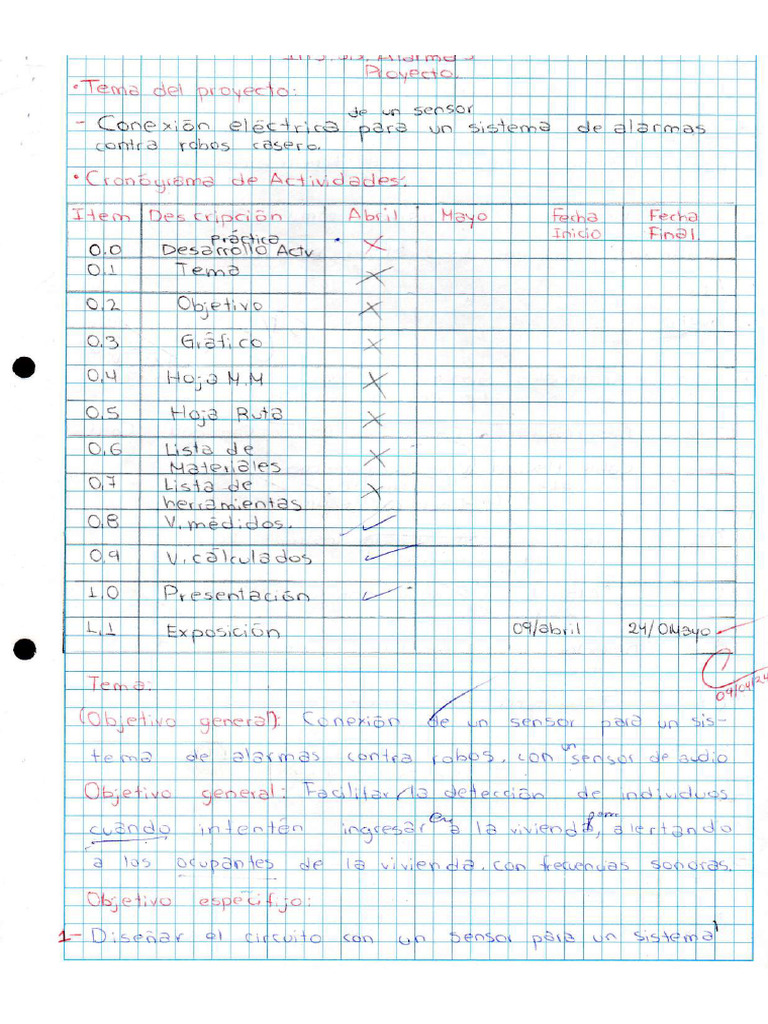 Alarma
Proyecto.
• Tema del proyecto:
de un sensor
- Conexión eléctrica para un sistema de alarmas
contra robos casero.
• Cronograma de Actividades.
Item Descripción Abril Mayo Fecha Inicio Fecha Final.
práctica
0.0 Desarrollo Actv X
0.1 Tema X
0.2 Objetivo X
0.3 Gráfico X
0.4 Hoja M.M X
0.5 Hoja Ruta X
0.6 Lista de Materiales X
0.7 Lista de herramientas X
0.8 V. médidos. ✓
0.9 V. cálculados ✓
1.0 Presentación ✓
1.1 Exposición 09/abril 24/0Mayo
09/04/24
Tema:
(Objetivo general): Conexión de un sensor para un sis-
tema de alarmas contra robos, con un sensor de audio
Objetivo general: Facilitar la detección de individuos
cuando intentén ingresar en a la vivienda, alertando
a los ocupantes de la vivienda, con frecuencias sonoras.
Objetivo especifijo:
1- Diseñar el circuito con un sensor para un sistema